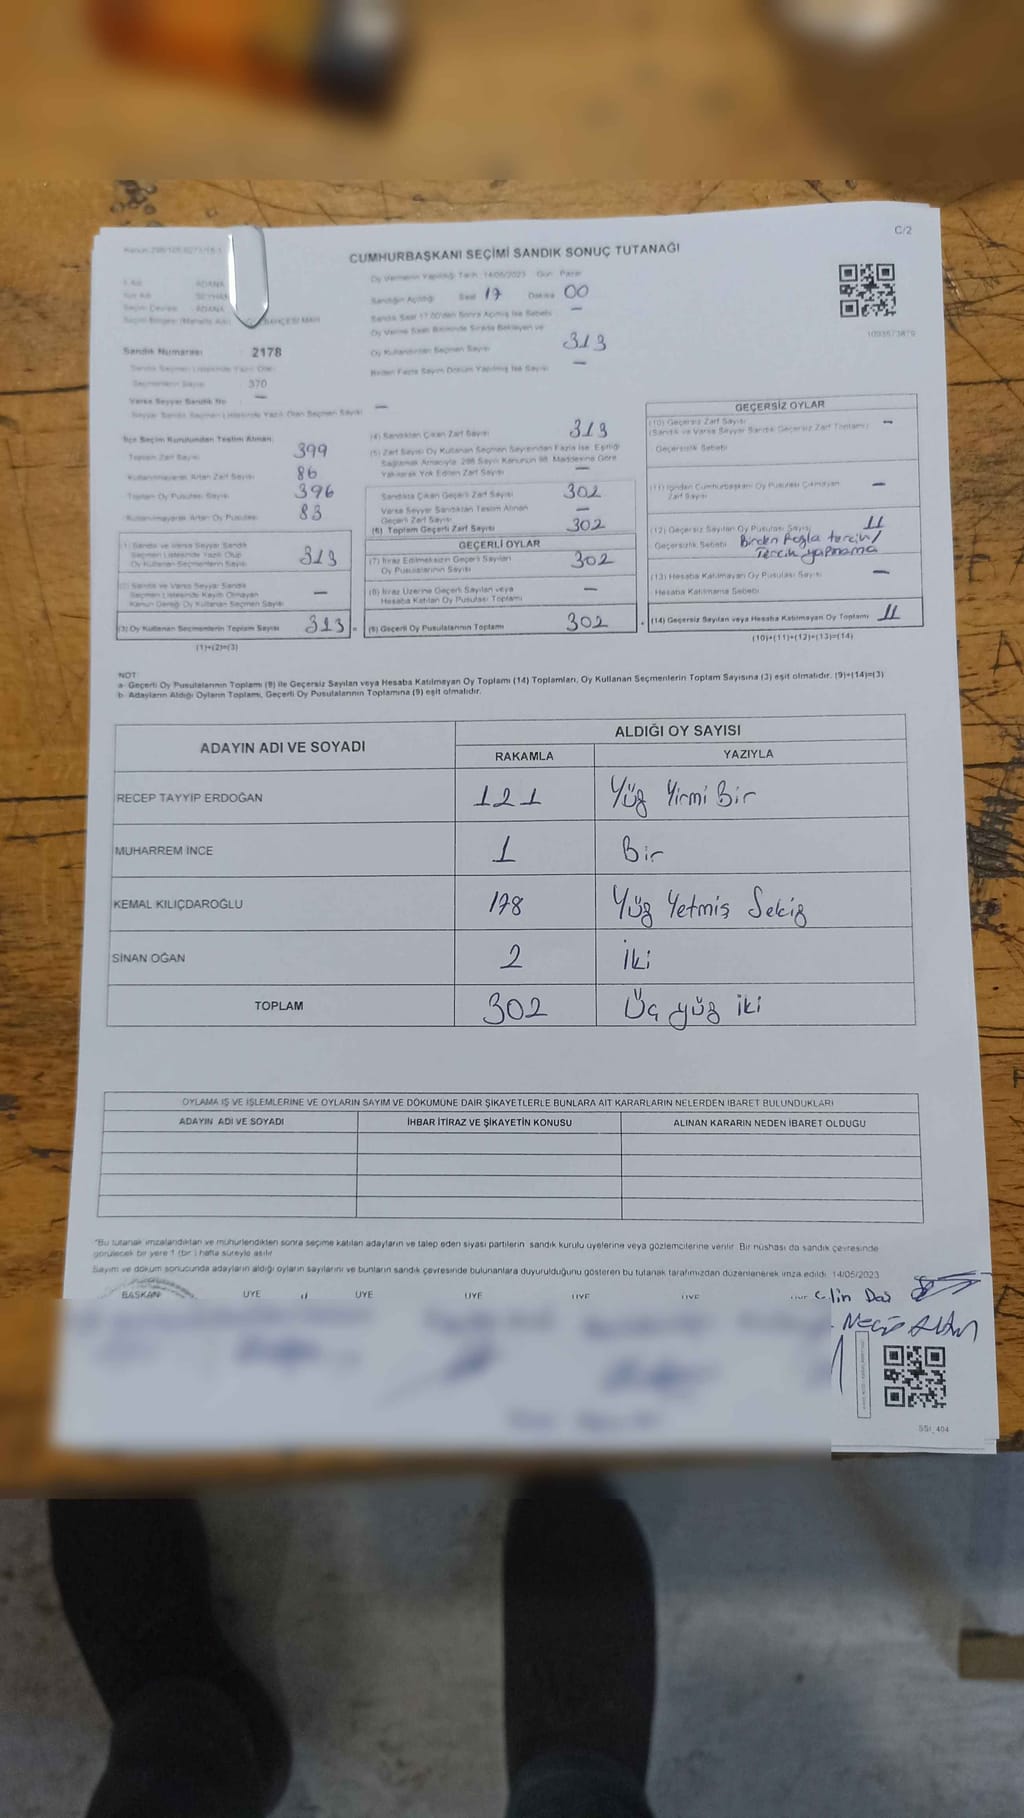 C/2
CUMHURBAŞKANI SEÇİMİ SANDIK SONUÇ TUTANAĞI
Oy Vermenin Yapıldığı Tarih 14/05/2023 Gün Pazar
ADANA
Sandığın Açıldığı Saat 17 Dakika 00
SEYHAN
ADANA
Sandık Saat 17.00'den Sonra Açılmış İse Sebebi —
BAHÇESİ MAH.
Oy Verme Saati Bitiminde Sırada Bekleyen ve
Oy Kullandırılan Seçmen Sayısı 313
1093573879
Sandık Numarası 2178
Birden Fazla Sayım Döküm Yapılmış İse Sayısı —
Sandık Seçmen Listesinde Yazılı Olan
Seçmenlerin Sayısı 370
Varsa Seyyar Sandık No —
Seyyar Sandık Seçmen Listesinde Yazılı Olan Seçmen Sayısı —
İlçe Seçim Kurulundan Teslim Alınan:
Toplam Zarf Sayısı 399
Kullanılmayarak Artan Zarf Sayısı 86
Toplam Oy Pusulası Sayısı 396
Kullanılmayarak Artan Oy Pusulası 83
(1) Sandık ve Varsa Seyyar Sandık
Seçmen Listesinde Yazılı Olup
Oy Kullanan Seçmenlerin Sayısı 313
(2) Sandık ve Varsa Seyyar Sandık
Seçmen Listesinde Kaydı Olmayan
Kanun Gereği Oy Kullanan Seçmen Sayısı —
(3) Oy Kullanan Seçmenlerin Toplam Sayısı 313
(1)+(2)=(3)
(4) Sandıktan Çıkan Zarf Sayısı 313
(5) Zarf Sayısı Oy Kullanan Seçmen Sayısından Fazla İse, Eşitliği
Sağlamak Amacıyla, 298 Sayılı Kanunun 98. Maddesine Göre
Yakılarak Yok Edilen Zarf Sayısı —
Sandıkta Çıkan Geçerli Zarf Sayısı 302
Varsa Seyyar Sandıktan Teslim Alınan
Geçerli Zarf Sayısı —
(6) Toplam Geçerli Zarf Sayısı 302
GEÇERLİ OYLAR
(7) İtiraz Edilmeksizin Geçerli Sayılan
Oy Pusulalarının Sayısı 302
(8) İtiraz Üzerine Geçerli Sayılan veya
Hesaba Katılan Oy Pusulası Toplamı —
(9) Geçerli Oy Pusulalarının Toplamı 302
GEÇERSİZ OYLAR
(10) Geçersiz Zarf Sayısı —
(Sandık ve Varsa Seyyar Sandık Geçersiz Zarf Toplamı)
Geçersizlik Sebebi
(11) İçinden Cumhurbaşkanı Oy Pusulası Çıkmayan
Zarf Sayısı —
(12) Geçersiz Sayılan Oy Pusulası Sayısı 11
Geçersizlik Sebebi Birden fazla tercih/
Tercih yapmama
(13) Hesaba Katılmayan Oy Pusulası Sayısı —
Hesaba Katılmama Sebebi
(14) Geçersiz Sayılan veya Hesaba Katılmayan Oy Toplamı 11
(10)+(11)+(12)+(13)=(14)
NOT
a- Geçerli Oy Pusulalarının Toplamı (9) ile Geçersiz Sayılan veya Hesaba Katılmayan Oy Toplamı (14) Toplamları, Oy Kullanan Seçmenlerin Toplam Sayısına (3) eşit olmalıdır. (9)+(14)=(3)
b- Adayların Aldığı Oyların Toplamı, Geçerli Oy Pusulalarının Toplamına (9) eşit olmalıdır.
ADAYIN ADI VE SOYADI
ALDIĞI OY SAYISI
RAKAMLA YAZIYLA
RECEP TAYYİP ERDOĞAN 121 Yüz Yirmi Bir
MUHARREM İNCE 1 Bir
KEMAL KILIÇDAROĞLU 178 Yüz Yetmiş Sekiz
SİNAN OĞAN 2 İki
TOPLAM 302 Üç yüz iki
OYLAMA İŞ VE İŞLEMLERİNE VE OYLARIN SAYIM VE DÖKÜMÜNE DAİR ŞİKAYETLERLE BUNLARA AİT KARARLARIN NELERDEN İBARET BULUNDUKLARI
ADAYIN ADI VE SOYADI İHBAR İTİRAZ VE ŞİKAYETİN KONUSU ALINAN KARARIN NEDEN İBARET OLDUĞU
*Bu tutanak imzalandıktan ve mühürlendikten sonra seçime katılan adayların ve talep eden siyasi partilerin sandık kurulu üyelerine veya gözlemcilerine verilir. Bir nüshası da sandık çevresinde
görülecek bir yere 1 (bir) hafta süreyle asılır
Sayım ve döküm sonucunda adayların aldığı oyların sayılarını ve bunların sandık çevresinde bulunanlara duyurulduğunu gösteren bu tutanak tarafımızdan düzenlenerek imza edildi. 14/05/2023
BAŞKAN ÜYE ÜYE ÜYE ÜYE ÜYE
SSI_404